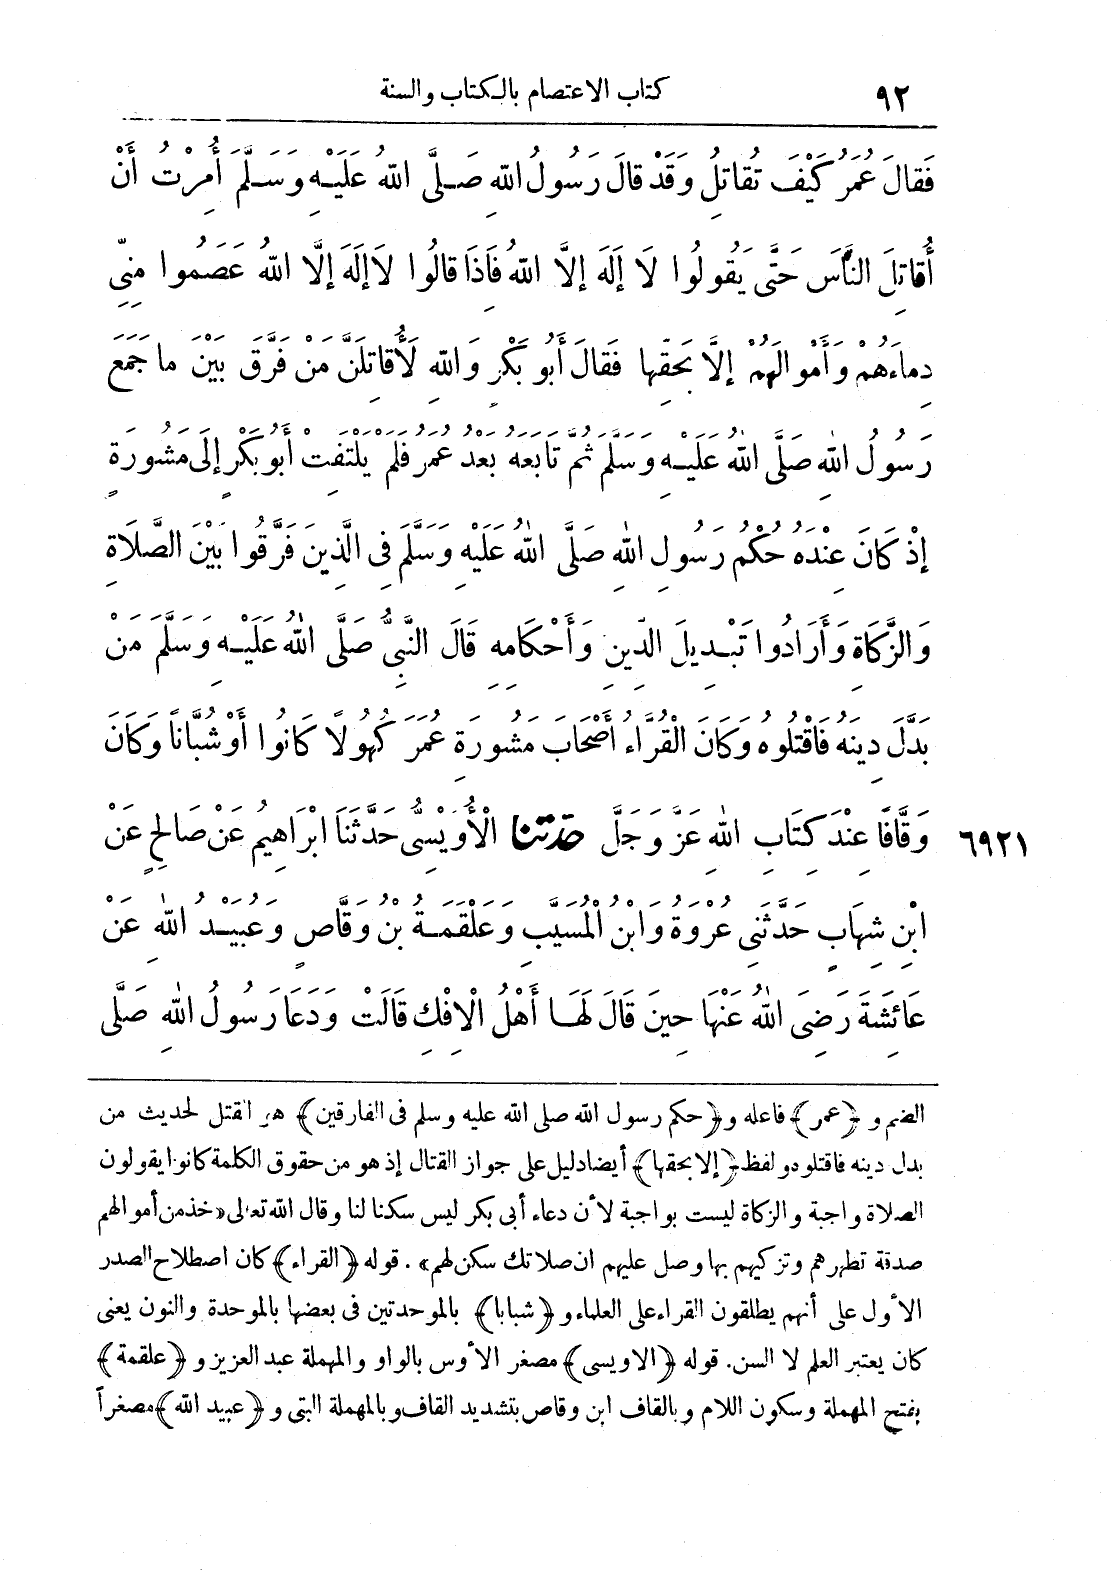 ٩٢ كتاب الاعتصام بالكتاب والسنة
فَقَالَ عُمَرُ كَيْفَ تُقَاتِلُ وَقَدْ قَالَ رَسُولُ اللهِ صَلَّى اللهُ عَلَيْهِ وَسَلَّمَ أُمِرْتُ أَنْ
أُقَاتِلَ النَّاسَ حَتَّى يَقُولُوا لَا إِلَهَ إِلَّا اللهُ فَإِذَا قَالُوا لَا إِلَهَ إِلَّا اللهُ عَصَمُوا مِنِّي
دِمَاءَهُمْ وَأَمْوَالَهُمْ إِلَّا بِحَقِّهَا فَقَالَ أَبُو بَكْرٍ وَاللهِ لَأُقَاتِلَنَّ مَنْ فَرَّقَ بَيْنَ مَا جَمَعَ
رَسُولُ اللهِ صَلَّى اللهُ عَلَيْهِ وَسَلَّمَ ثُمَّ تَابَعَهُ بَعْدُ عُمَرُ فَلَمْ يَلْتَفِتْ أَبُو بَكْرٍ إِلَى مَشُورَةٍ
إِذْ كَانَ عِنْدَهُ حُكْمُ رَسُولِ اللهِ صَلَّى اللهُ عَلَيْهِ وَسَلَّمَ فِى الَّذِينَ فَرَّقُوا بَيْنَ الصَّلَاةِ
وَالزَّكَاةِ وَأَرَادُوا تَبْدِيلَ الدِّينِ وَأَحْكَامِهِ قَالَ النَّبِىُّ صَلَّى اللهُ عَلَيْهِ وَسَلَّمَ مَنْ
بَدَّلَ دِينَهُ فَاقْتُلُوهُ وَكَانَ الْقُرَّاءُ أَصْحَابَ مَشُورَةِ عُمَرَ كُهُولًا كَانُوا أَوْ شُبَّانًا وَكَانَ
٦٩٢١ وَقَّافًا عِنْدَ كِتَابِ اللهِ عَزَّ وَجَلَّ حدثنا الْأُوَيْسِىُّ حَدَّثَنَا إِبْرَاهِيمُ عَنْ صَالِحٍ عَنْ
ابْنِ شِهَابٍ حَدَّثَنِى عُرْوَةُ وَابْنُ الْمُسَيَّبِ وَعَلْقَمَةُ بْنُ وَقَّاصٍ وَعُبَيْدُ اللهِ عَنْ
عَائِشَةَ رَضِىَ اللهُ عَنْهَا حِينَ قَالَ لَهَا أَهْلُ الْإِفْكِ قَالَتْ وَدَعَا رَسُولُ اللهِ صَلَّى
الضم و ﴿عمر﴾ فاعله و﴿حكم رسول الله صلى الله عليه وسلم فى الفارقين﴾ هو القتل لحديث من
بدل دينه فاقتلوه ولفظ ﴿إلا بحقها﴾ أيضا دليل على جواز القتال إذ هو من حقوق الكلمة كانوا يقولون
الصلاة واجبة والزكاة ليست بواجبة لأن دعاء أبى بكر ليس سكنا لنا وقال الله تعالى «خذ من أموالهم
صدقة تطهرهم وتزكيهم بها وصل عليهم ان صلاتك سكن لهم» . قوله ﴿القراء﴾ كان اصطلاح الصدر
الأول على أنهم يطلقون القراء على العلماء و ﴿شبابا﴾ بالموحدتين فى بعضها بالموحدة والنون يعنى
كان يعتبر العلم لا السن. قوله ﴿الاويسى﴾ مصغر الأوس بالواو والمهملة عبد العزيز و ﴿علقمة﴾
بفتح المهملة وسكون اللام وبالقاف ابن وقاص بتشديد القاف وبالمهملة البتى و ﴿عبيد الله﴾ مصغراً